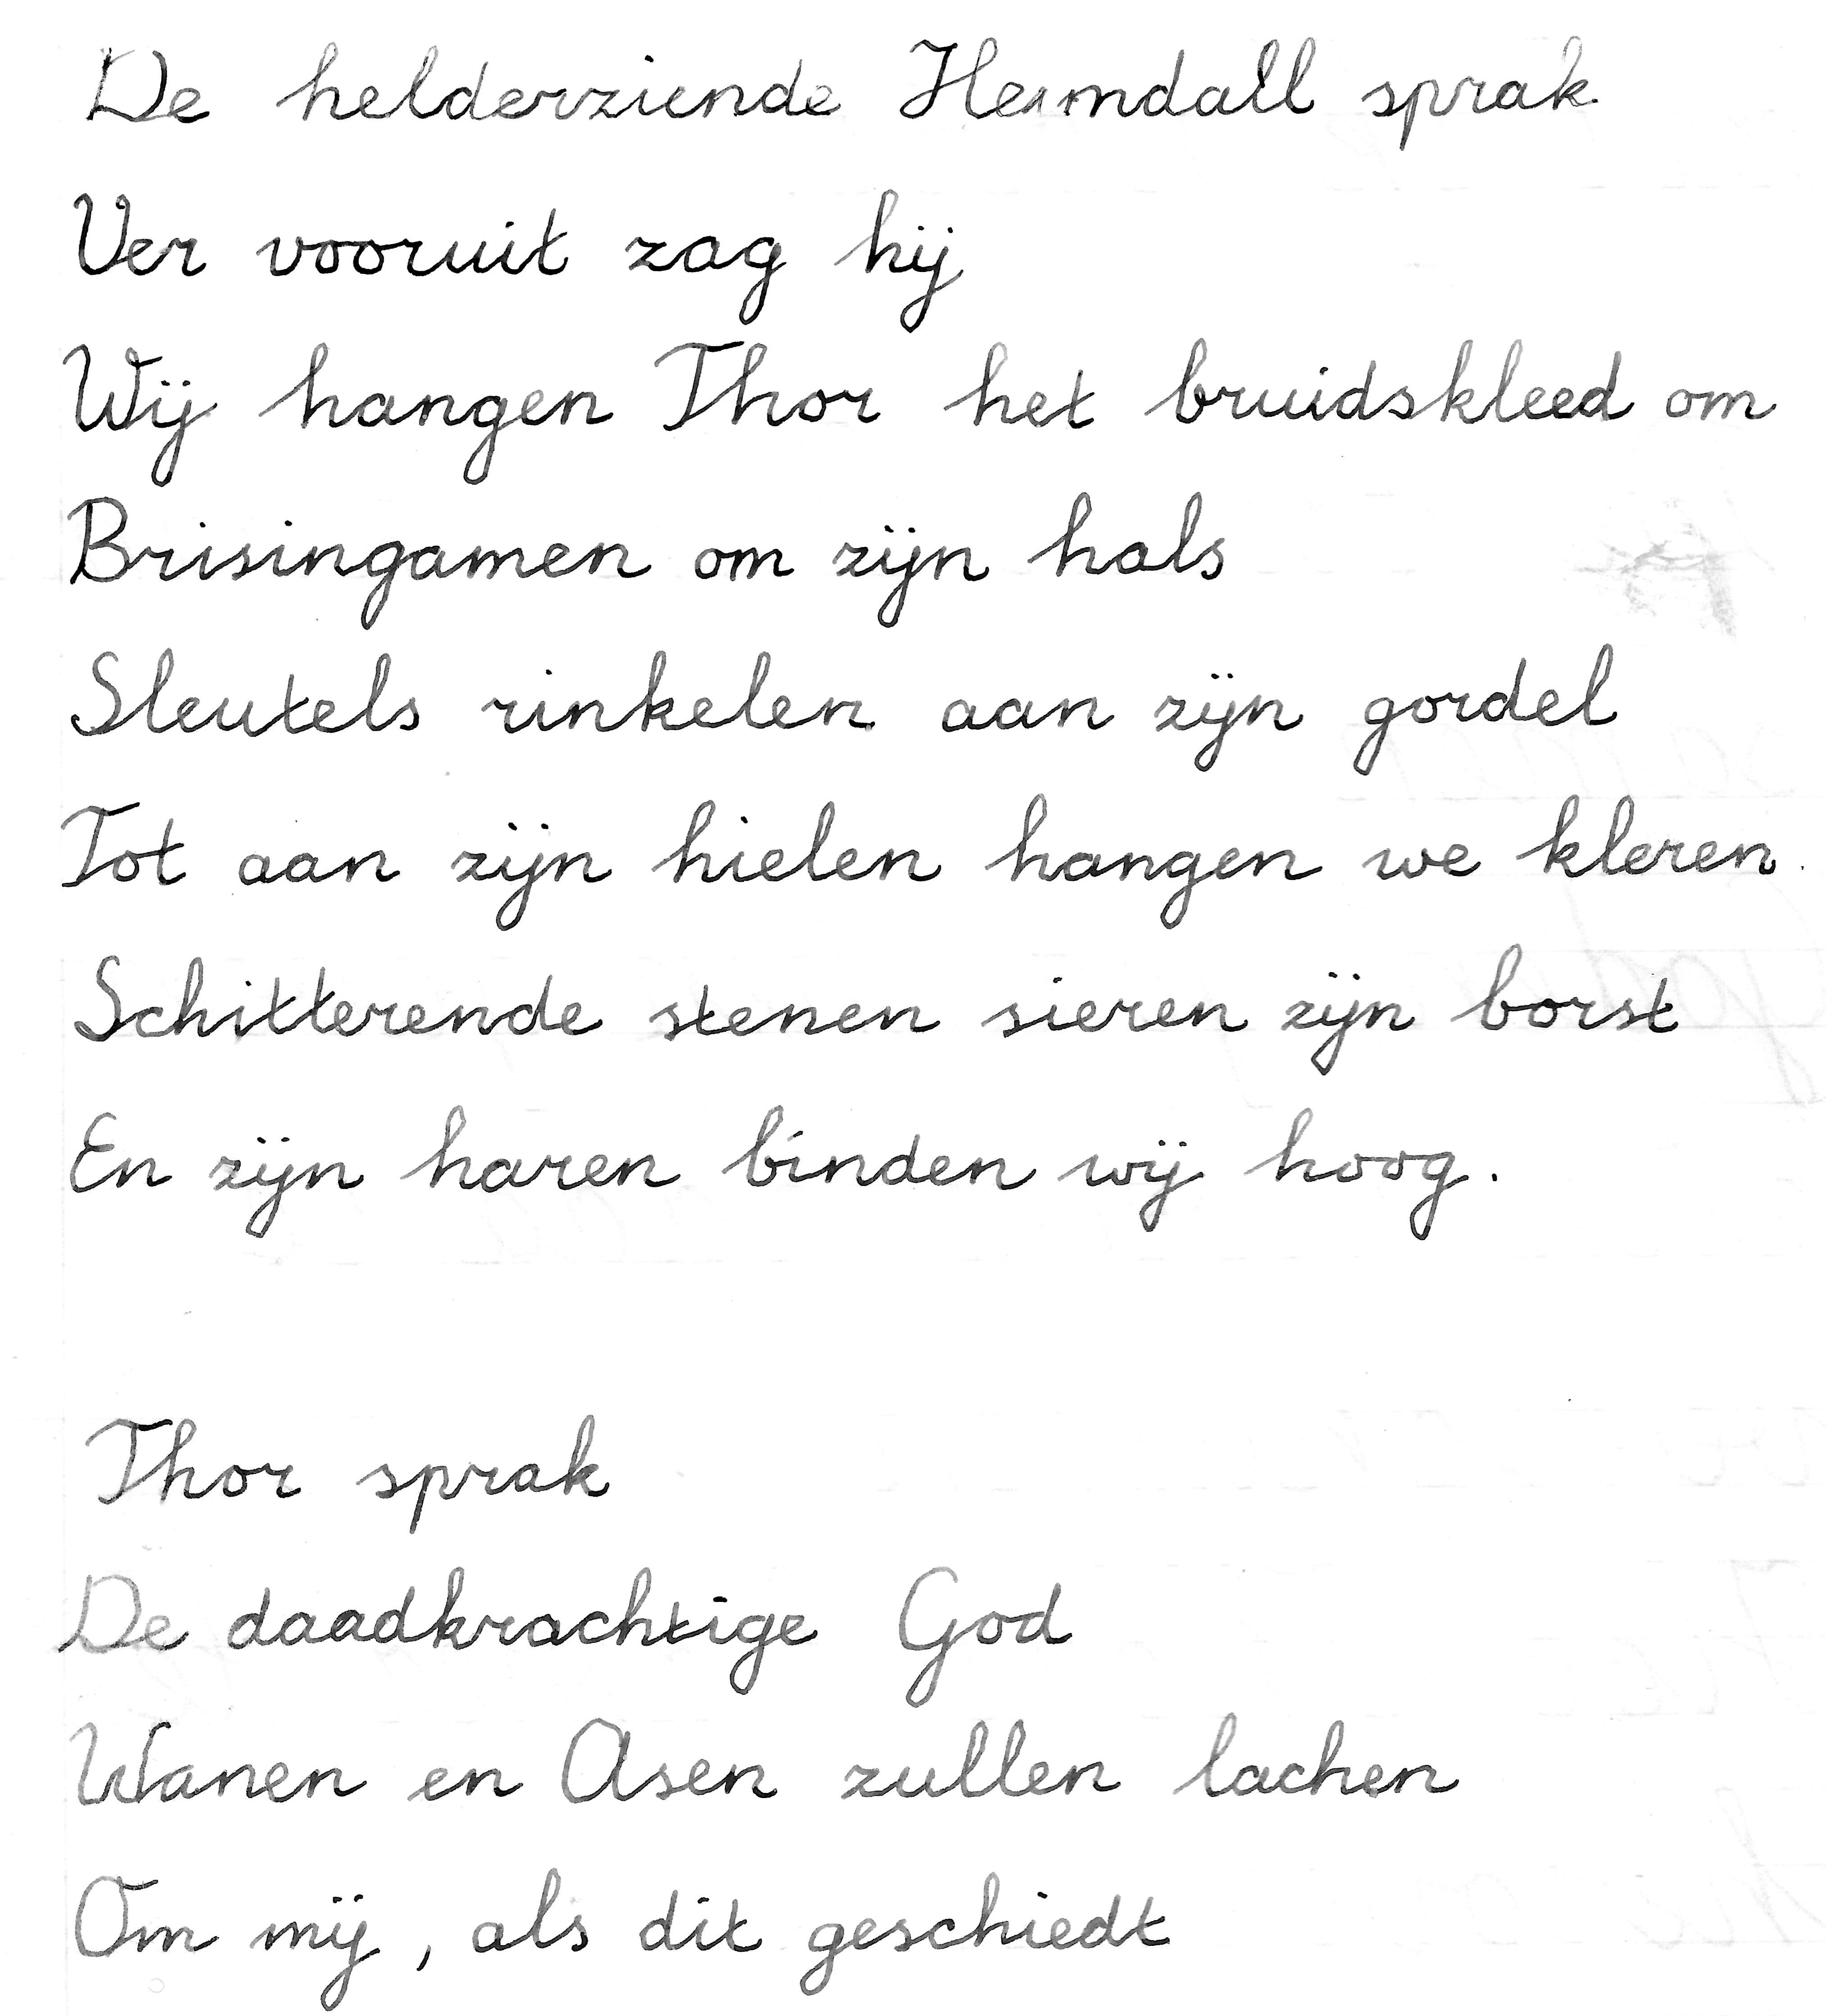 De helderziende Heimdall sprak
Ver vooruit zag hij
Wij hangen Thor het bruidskleed om
Brisingamen om zijn hals
Sleutels rinkelen aan zijn gordel
Tot aan zijn hielen hangen we kleren.
Schitterende stenen sieren zijn borst
En zijn haren binden wij hoog.
Thor sprak
De daadkrachtige God
Wanen en Asen zullen lachen
Om mij, als dit geschiedt